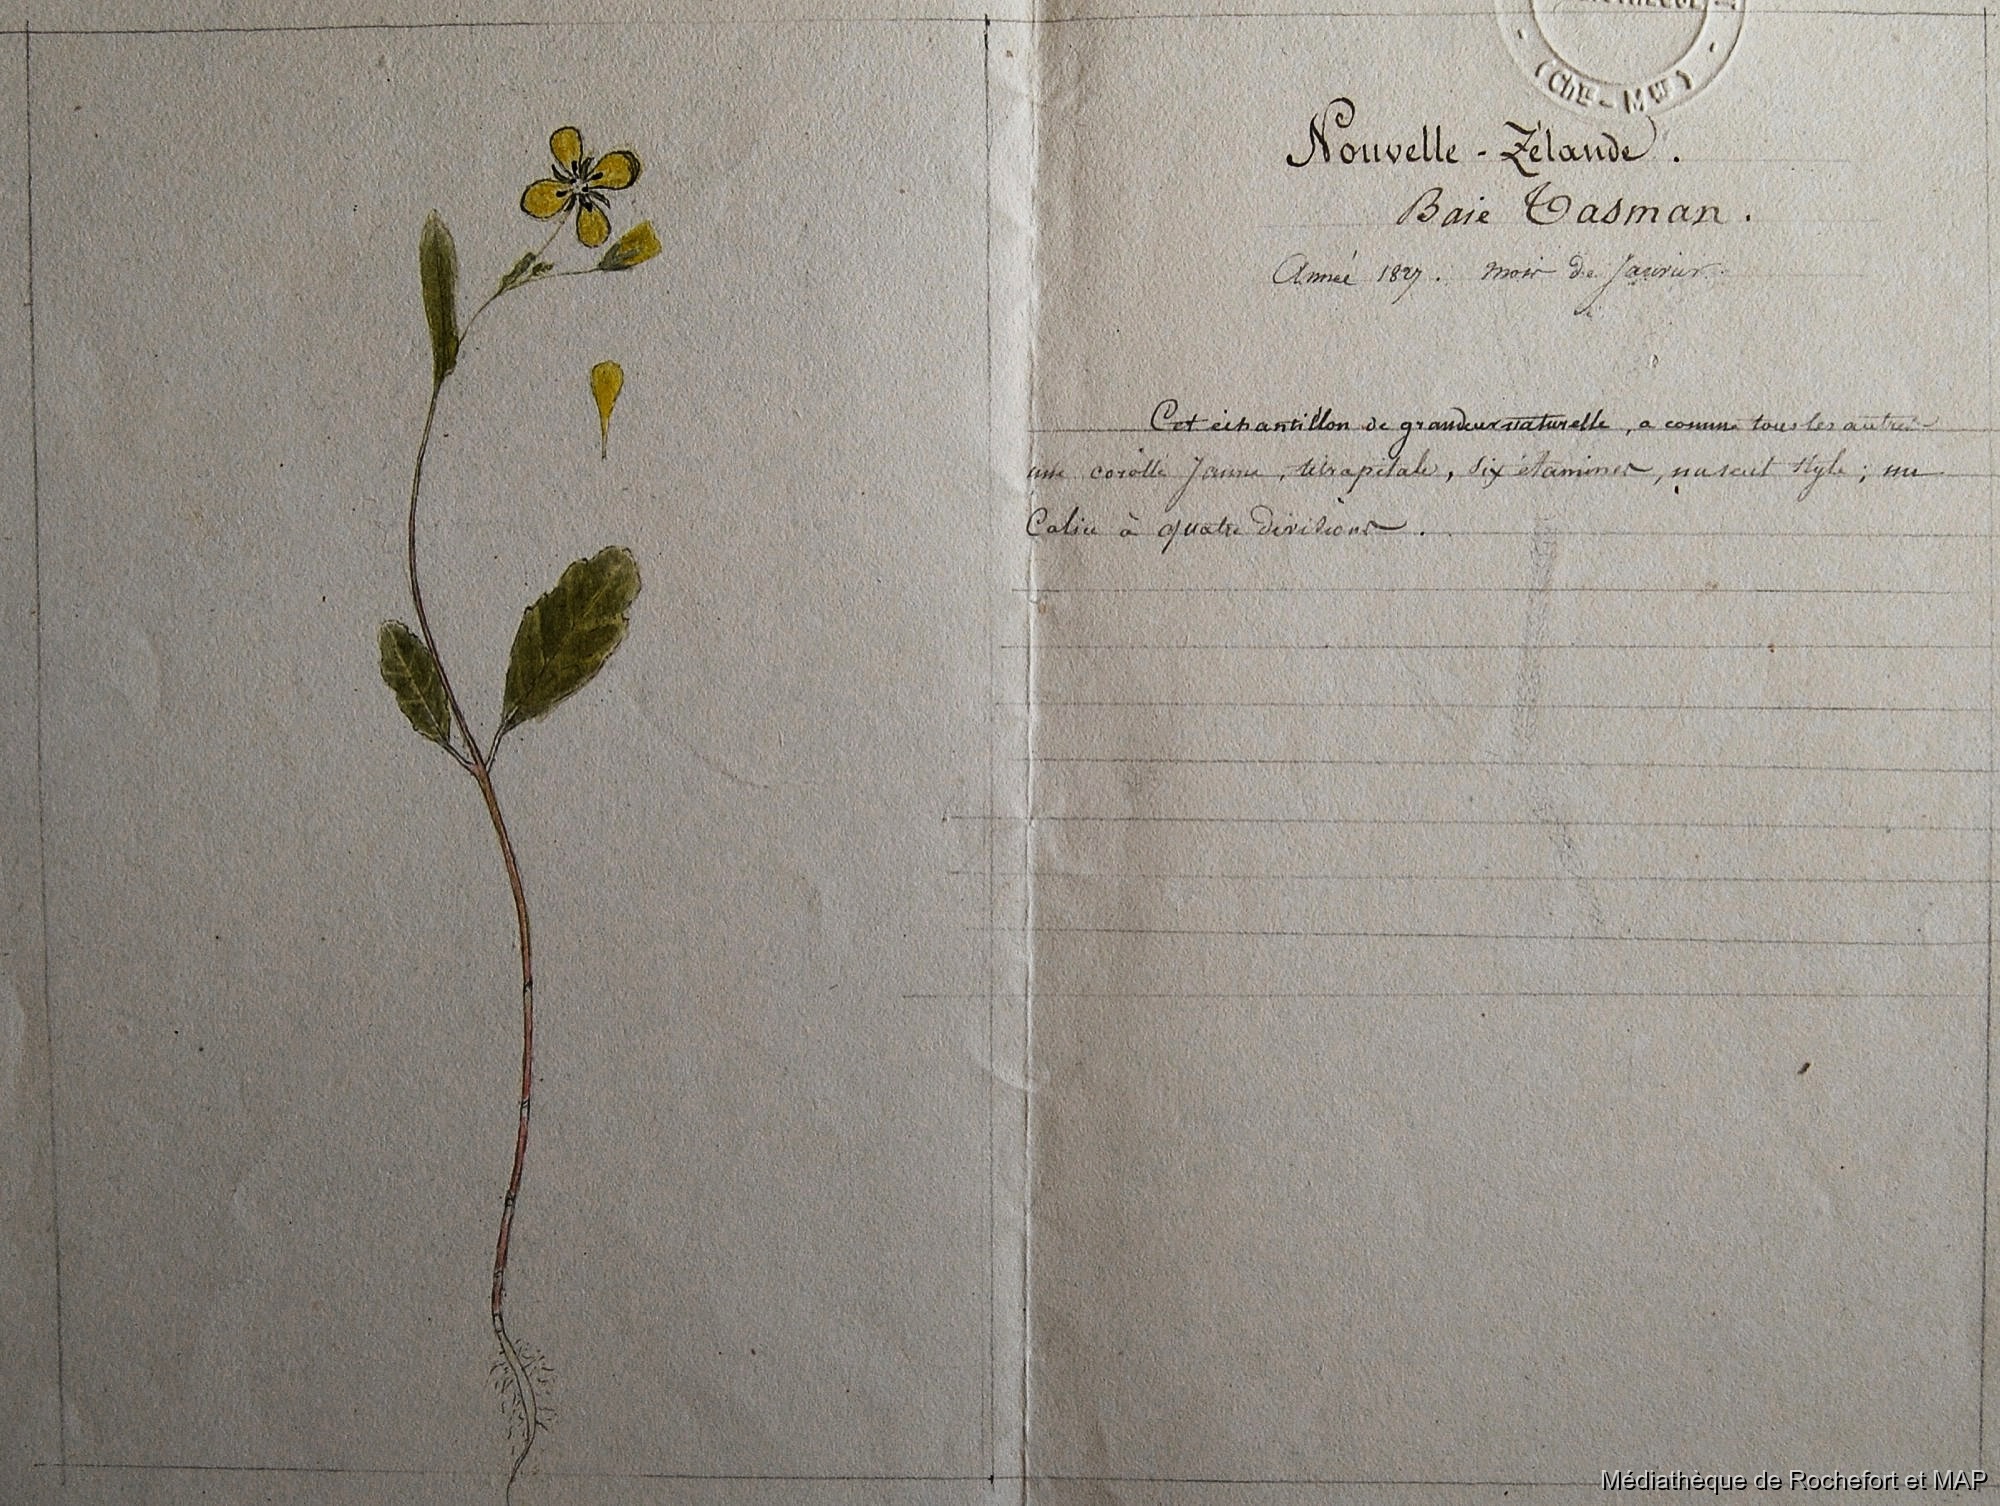 (Chte - Mme)
Nouvelle - Zélande.
Baie Tasman.
Année 1827. mois de Janvier.
Cet échantillon de grandeur naturelle, a comme tous les autres
une corolle Jaune, tétrapétale, Six étamines, un seul Style; un
Calice à quatre divisions.
Médiathèque de Rochefort et MAP